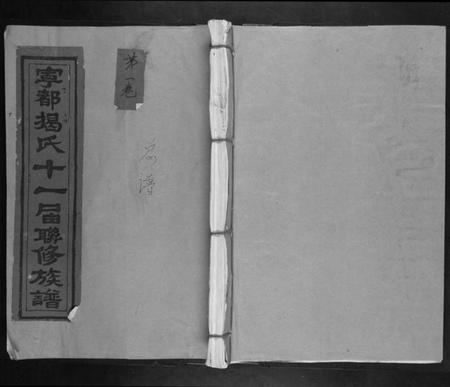 寧都揭氏十一届聯修族譜
第一卷
总谱